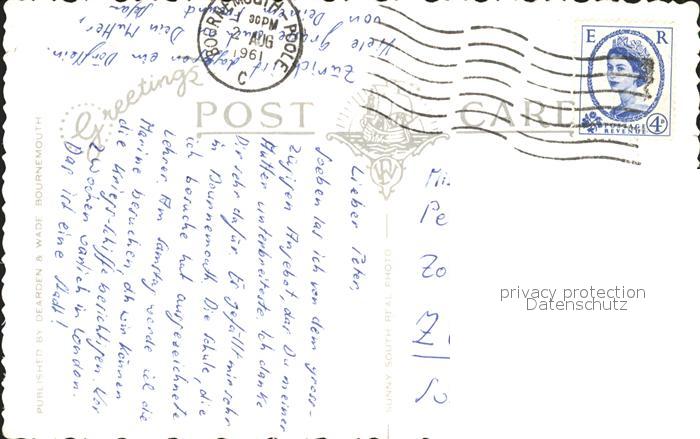 Greetings
POST CARD
BOURNEMOUTH-POOLE
30PM
2 AUG
1961
C
E R
POSTAGE
REVENUE
4D
PUBLISHED BY DEARDEN & WADE BOURNEMOUTH
SUNNY SOUTH REAL PHOTO
Lieber Peter,
Soeben las ich von dem gross-
zügigen Angebot, das Du meiner
Mutter unterbreitest. Ich danke
Dir sehr dafür. Es gefällt mir sehr
in Bournemouth. Die Schule, die
ich besuche hat ausgezeichnete
Lehrer. Am Samstag werde ich die
Marine besuchen, dh wir können
die Kriegs-Schiffe besichtigen. Vor
2 Wochen war ich in London.
Das ist eine Stadt!
Zürich ist dagegen ein Dörflein.
Dein Mutter,
von Deinem
Mi
Pe
Zo
Z
privacy protection
Datenschutz